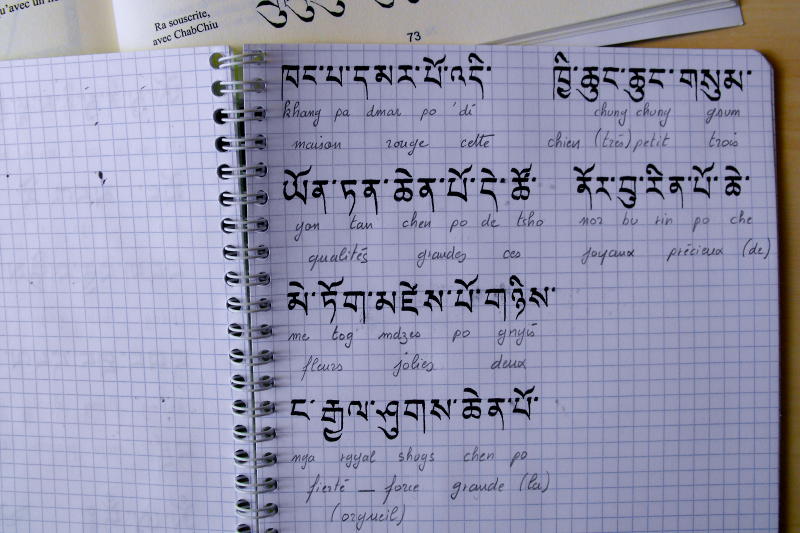 qu'avec un
Ra souscrite,
avec ChabChiu
73
ཁང་པ་དམར་པོ་འདི་ ཁྱི་ཆུང་ཆུང་གསུམ་
khang pa dmar po 'di chung chung gsum
maison rouge cette chien (très) petit trois
ཡོན་ཏན་ཆེན་པོ་དེ་ཚོ་ ནོར་བུ་རིན་པོ་ཆེ་
yon tan chen po de tsho nor bu rin po che
qualités grandes ces joyaux précieux (de)
མེ་ཏོག་མཛེས་པོ་གཉིས་
me tog mdzes po gnyis
fleurs jolies deux
ང་རྒྱལ་ཤུགས་ཆེན་པོ་
nga rgyal shugs chen po
fierté — force grande (la)
(orgueil)